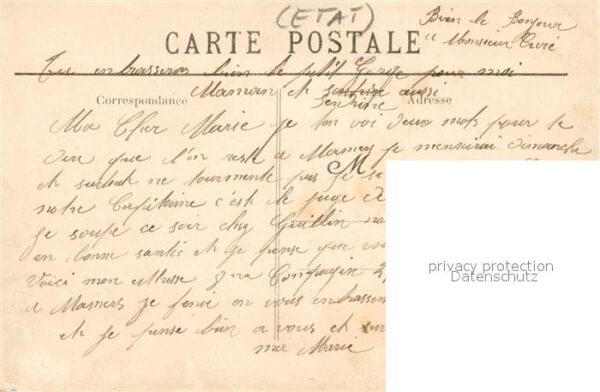 (ETAT)
Bien le Bonjour
a Monsieur
CARTE POSTALE
Tu embrasseras bien le petit George pour moi
Maman et aussi
Correspondance
Adresse
Ma Cher Marie je ton voi deux mots pour te
dire que l'on reste a Mamers je Dimanche
et surtout ne tourmente pas je se
M
notre Capitaine c'est le juge d
je soupe ce soir chez Guillin no
en bonne santé et je pense que vou
Voici mon adresse Compagnie
a Mamers je fini en vous embrassen
et je pense bien a vous et sur
Marie
privacy protection
Datenschutz